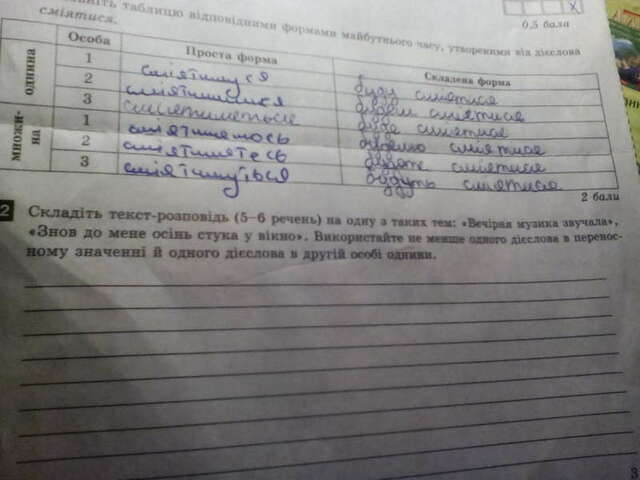 таблицю відповідними формами майбутнього часу, утвореними від дієслова
сміятися.
X
0,5 бали
Особа Проста форма Складена форма
однина
1 сміятимуся буду сміятися
2 сміятимешся будеш сміятися
3 сміятиметься буде сміятися
множи-
на
1 сміятимемось будемо сміятися
2 сміятиметесь будете сміятися
3 сміятимуться будуть сміятися
2 бали
2 Складіть текст-розповідь (5–6 речень) на одну з таких тем: «Вечірня музика звучала»,
«Знов до мене осінь стука у вікно». Використайте не менше одного дієслова в перенос-
ному значенні й одного дієслова в другій особі однини.
3